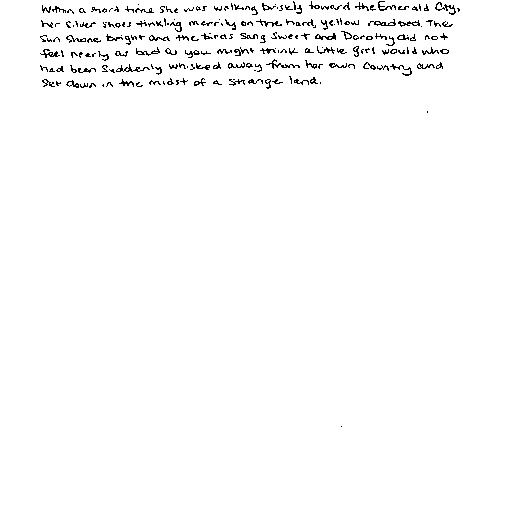 Within a short time she was walking briskly toward the Emerald City,
her Silver Shoes tinkling merrily on the hard, yellow roadbed. The
Sun Shone bright and the birds Sang Sweet and Dorothy did not
feel nearly as bad as you might think a little girl would who
had been Suddenly whisked away from her own Country and
Set down in the midst of a Strange land.